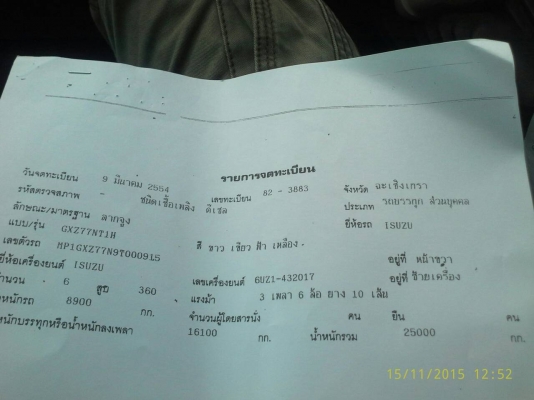 รายการจดทะเบียน
วันจดทะเบียน 9 มีนาคม 2554 เลขทะเบียน 82 - 3883 จังหวัด ฉะเชิงเทรา
รหัสตรวจสภาพ - ชนิดเชื้อเพลิง ดีเซล ประเภท รถบรรทุก ส่วนบุคคล
ลักษณะ/มาตรฐาน ลากจูง ยี่ห้อรถ ISUZU
แบบ/รุ่น GXZ77NT1H สี ขาว เขียว ฟ้า เหลือง
เลขตัวรถ MP1GXZ77N9T000915 อยู่ที่ หน้าขวา
ยี่ห้อเครื่องยนต์ ISUZU เลขเครื่องยนต์ 6UZ1-432017 อยู่ที่ ซ้ายเครื่อง
จำนวน 6 สูบ 360 แรงม้า 3 เพลา 6 ล้อ ยาง 10 เส้น
น้ำหนักรถ 8900 กก. จำนวนผู้โดยสารนั่ง คน ยืน คน
น้ำหนักบรรทุกหรือน้ำหนักลงเพลา 16100 กก. น้ำหนักรวม 25000 กก.
15/11/2015 12:52